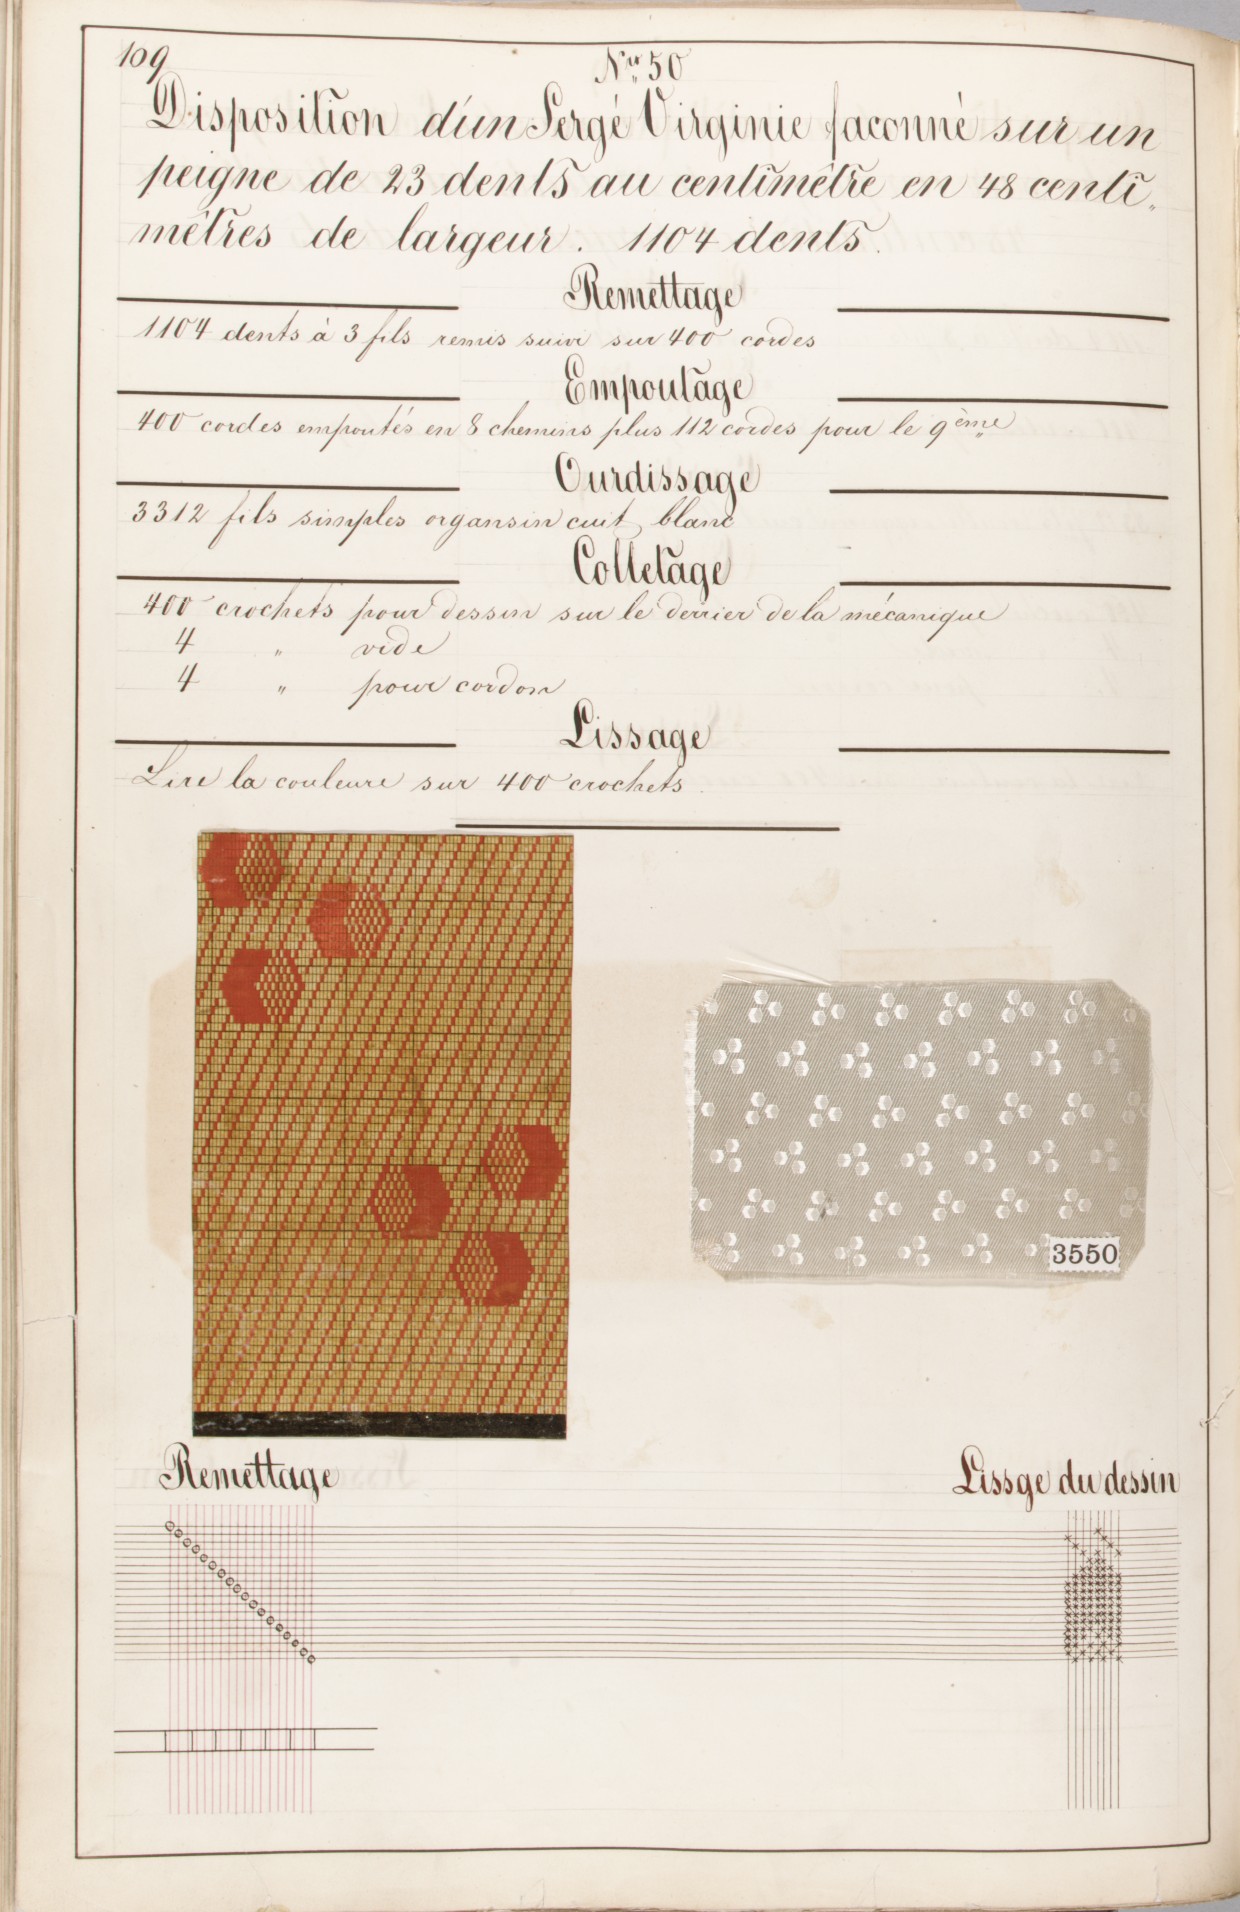 109
Nro 50
Disposition d'un Sergé Virginie faconné sur un
peigne de 23 dents au centimêtre en 48 centi„
mêtres de largeur. 1104 dents.
Remettage
1104 dents à 3 fils remis suivi sur 400 cordes
Empoutage
400 cordes empoutés en 8 chemins plus 112 cordes pour le 9ème
Ourdissage
3312 fils simples organsin cuit blanc
Colletage
400 crochets pour dessin sur le derrier de la mécanique
4 „ vide
4 „ pour cordon
Lissage
Lire la couleure sur 400 crochets.
3550
Remettage
Lissge du dessin